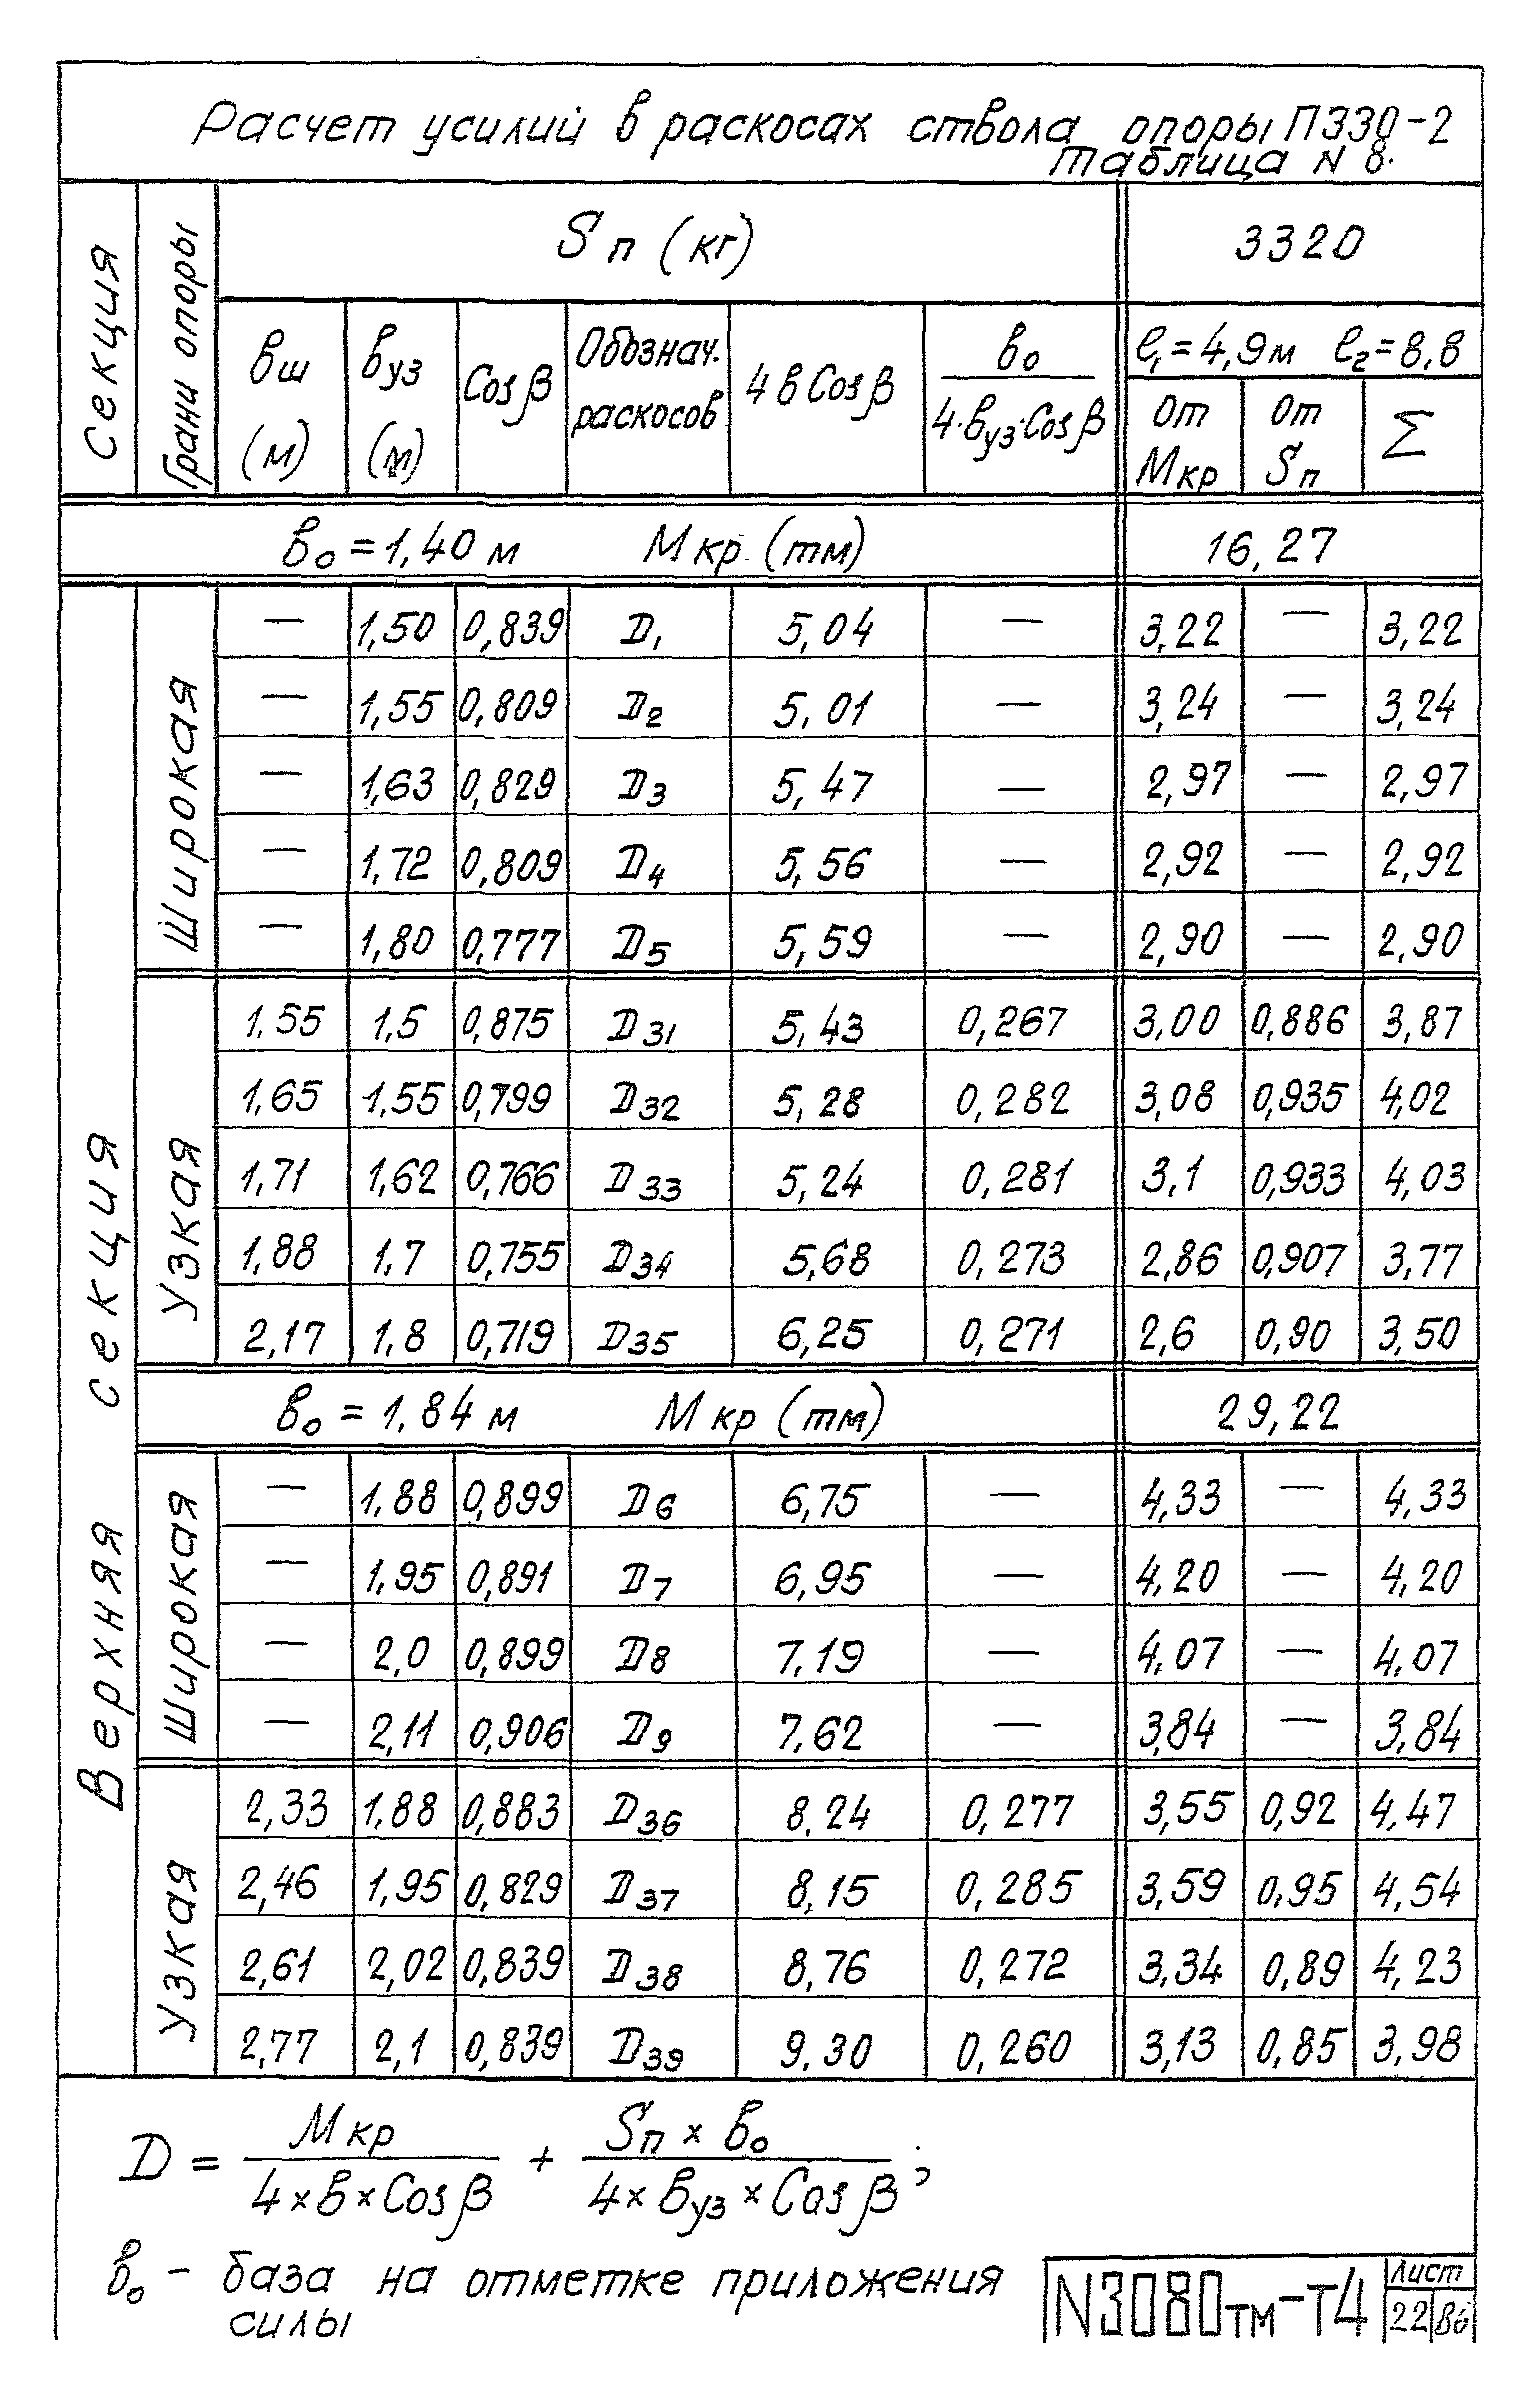 Расчет усилий в раскосах ствола опоры П330-2
таблица N 8.
Секция
Грани опоры
Sп (кг)
3320
вш (м)
вуз (м)
Cosβ
Обознач. раскосов
4вCosβ
в₀ / 4·вуз·Cosβ
ℓ₁=4,9м ℓ₂=8,8
от Мкр
от Sп
Σ
в₀=1,40м Мкр.(тм) 16,27
Верхняя секция
Широкая
— 1,50 0,839 D₁ 5,04 — 3,22 — 3,22
— 1,55 0,809 D₂ 5,01 — 3,24 — 3,24
— 1,63 0,829 D₃ 5,47 — 2,97 — 2,97
— 1,72 0,809 D₄ 5,56 — 2,92 — 2,92
— 1,80 0,777 D₅ 5,59 — 2,90 — 2,90
Узкая
1,55 1,5 0,875 D₃₁ 5,43 0,267 3,00 0,886 3,87
1,65 1,55 0,799 D₃₂ 5,28 0,282 3,08 0,935 4,02
1,71 1,62 0,766 D₃₃ 5,24 0,281 3,1 0,933 4,03
1,88 1,7 0,755 D₃₄ 5,68 0,273 2,86 0,907 3,77
2,17 1,8 0,719 D₃₅ 6,25 0,271 2,6 0,90 3,50
в₀=1,84м Мкр (тм) 29,22
Широкая
— 1,88 0,899 D₆ 6,75 — 4,33 — 4,33
— 1,95 0,891 D₇ 6,95 — 4,20 — 4,20
— 2,0 0,899 D₈ 7,19 — 4,07 — 4,07
— 2,11 0,906 D₉ 7,62 — 3,84 — 3,84
Узкая
2,33 1,88 0,883 D₃₆ 8,24 0,277 3,55 0,92 4,47
2,46 1,95 0,829 D₃₇ 8,15 0,285 3,59 0,95 4,54
2,61 2,02 0,839 D₃₈ 8,76 0,272 3,34 0,89 4,23
2,77 2,1 0,839 D₃₉ 9,30 0,260 3,13 0,85 3,98
D = Мкр / 4×в×Cosβ + Sп×в₀ / 4×вуз×Cosβ ;
в₀ - база на отметке приложения
силы
N3080тм-т4
Лист
22